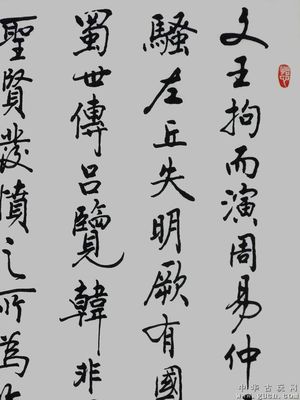 文王拘而演周易仲
騷左丘失明厥有國
蜀世傳呂覽韓非
聖賢發憤之所為
中华古玩网
www.gucn.com